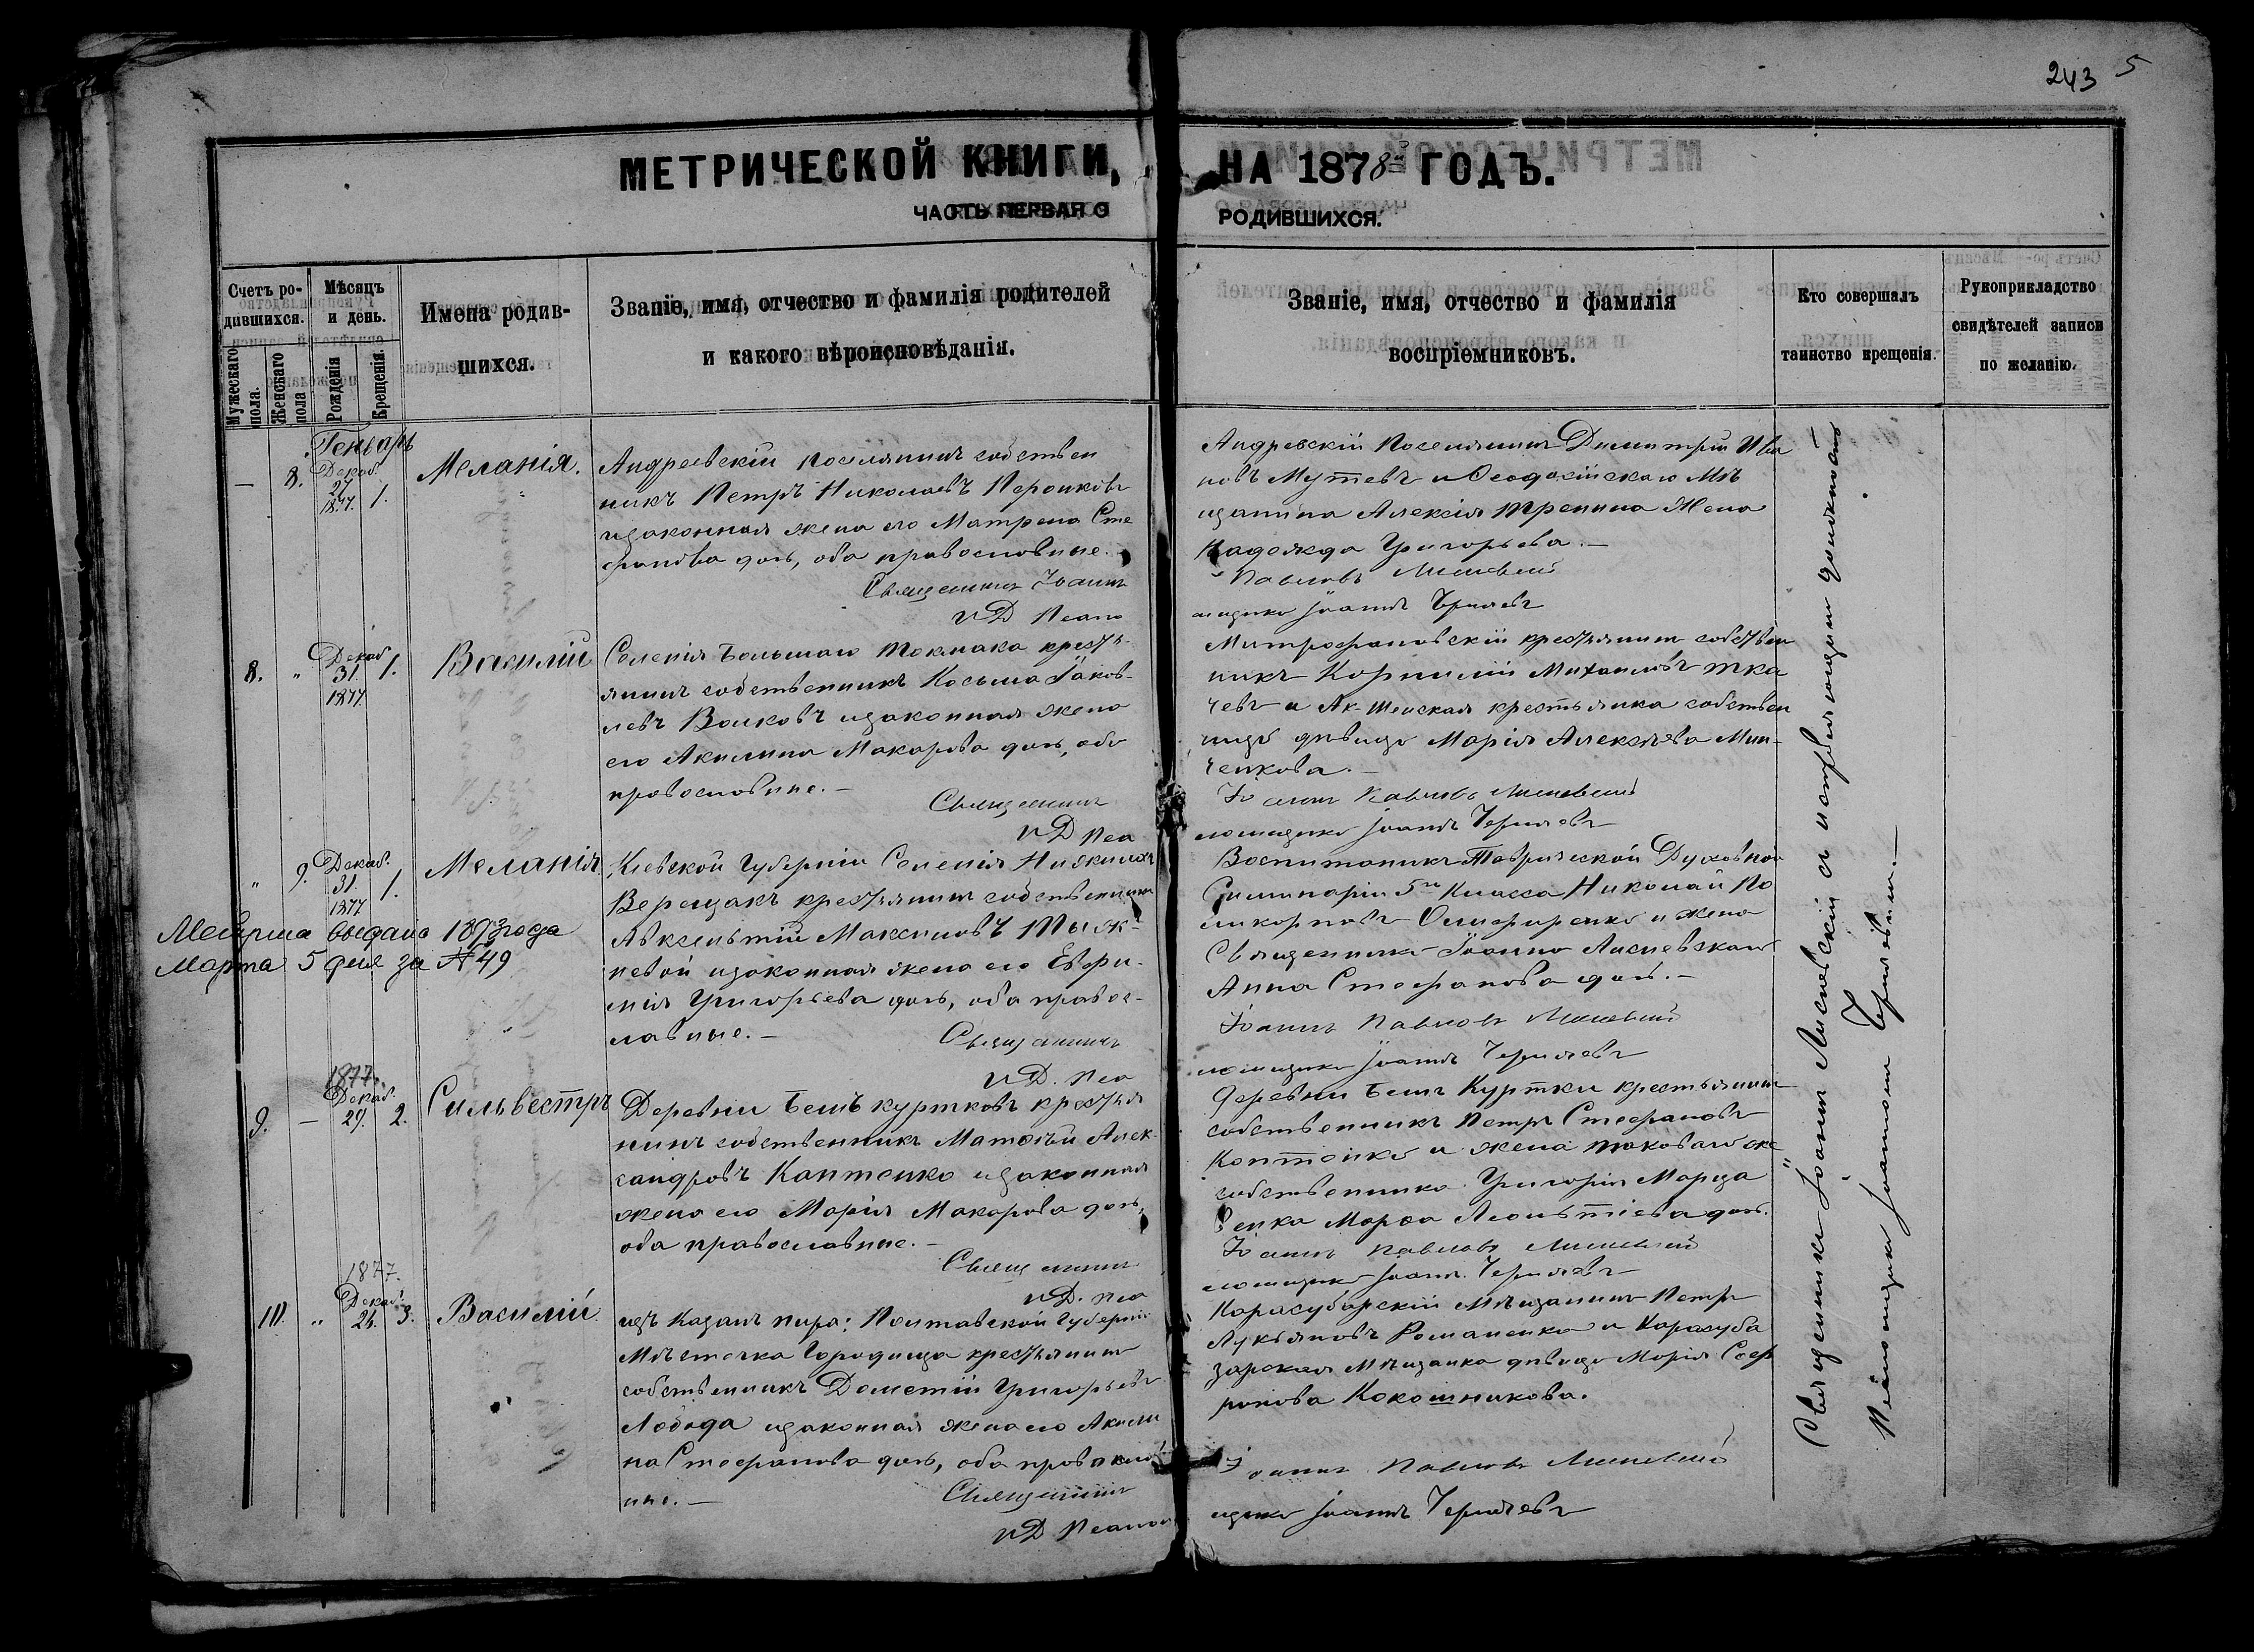 243 5
МЕТРИЧЕСКОЙ КНИГИ, НА 1878й ГОДЪ.
ЧАСТЬ ПЕРВАЯ О РОДИВШИХСЯ.
Счетъ родившихся.
Мужескаго пола.
Женскаго пола
Мѣсяцъ и день.
Рожденія
Крещенія.
Имена родившихся.
Званіе, имя, отчество и фамилія родителей
и какого вѣроисповѣданія.
Званіе, имя, отчество и фамилія
воспріемниковъ.
Кто совершалъ
таинство крещенія.
Рукоприкладство
свидѣтелей записи
по желанію.
Геньарь
— 8. Декаб. 27 1877. 1.
Меланія.
Андреевскій поселянинъ собствен
никъ Петръ Николаевъ
изаконная жена его Матрена Сте
фанова дочь, оба православные.
Священникъ Іоаннъ
Андреевскій поселянинъ Димитрій Ива
новъ Мутевъ и Ѳеодосійскаго Мѣ
щанина Алексія жена
Надежда Григорьева.—
Павловъ Лисневскій
Іоаннъ Черняевъ
8. " Декаб 31. 1877. 1.
Василій
Селенія Большаго Токмака кресть
янинъ собственникъ Косьма Іаков-
левъ Волковъ изаконная жена
его Акилина Макарова дочь, оба
православные.—
Священникъ
Митрофановскій крестьянинъ собствен
никъ Корнилій Михаиловъ Тка
чевъ и Ак-Шейская крестьянка собствен
ница дѣвица Марія Алексѣева Мин-
ченкова.—
Іоаннъ Павловъ Лисневскій
Іоаннъ Черняевъ
" 9. Декаб. 31. 1877 1.
Меланія
Метрика выдана 1893 года
Марта 5 дня за № 49
Кіевской Губерніи Селенія
Верещакъ крестьянинъ собственникъ
Авксентій Максимовъ
изаконная жена его Евфи-
мія Григорьева дочь, оба правос-
лавные.—
Священникъ
Воспитаникъ Таврической Духовной
Семинаріи 5го Класса Николай По
ликарповъ и жена
Священника Іоанна Лисневскаго
Анна Стефанова дочь.—
Іоаннъ Павловъ Лисневскій
Іоаннъ Черняевъ
9. — 1877. Декаб. 29. 2.
Сильвестръ
Деревни Бешъ куртковъ крестья
нинъ собственникъ Матвѣй Алек-
сандровъ Коптенко изаконная
жена его Марія Макарова дочь,
оба православные.—
Священникъ
Деревни Бешъ Куртки крестьянинъ
собственникъ Петръ Стефановъ
Коптенко и жена таковаго же
собственника Григорія
Марѳа Леонтіева дочь.
Іоаннъ Павловъ Лисневскій
Іоаннъ Черняевъ
10. " 1877. Декаб. 26. 3.
Василій.
Полтавской Губерніи
Мѣстечка Городища крестьянинъ
собственникъ Дометій Григорьевъ
Лобода изаконная жена его Акили
на Стефанова дочь, оба православ
ные.—
Священникъ
Карасубазарскій Мѣщанинъ Петръ
Лукьяновъ Романенко и Карасуба
зарская Мѣщанка дѣвица Марія Соф
ронова Кокошникова.
Іоаннъ Павловъ Лисневскій
Іоаннъ Черняевъ
Священникъ Іоаннъ Лисневскій съ исправляющимъ должность
Псаломщика Іоанномъ Черняевымъ.—